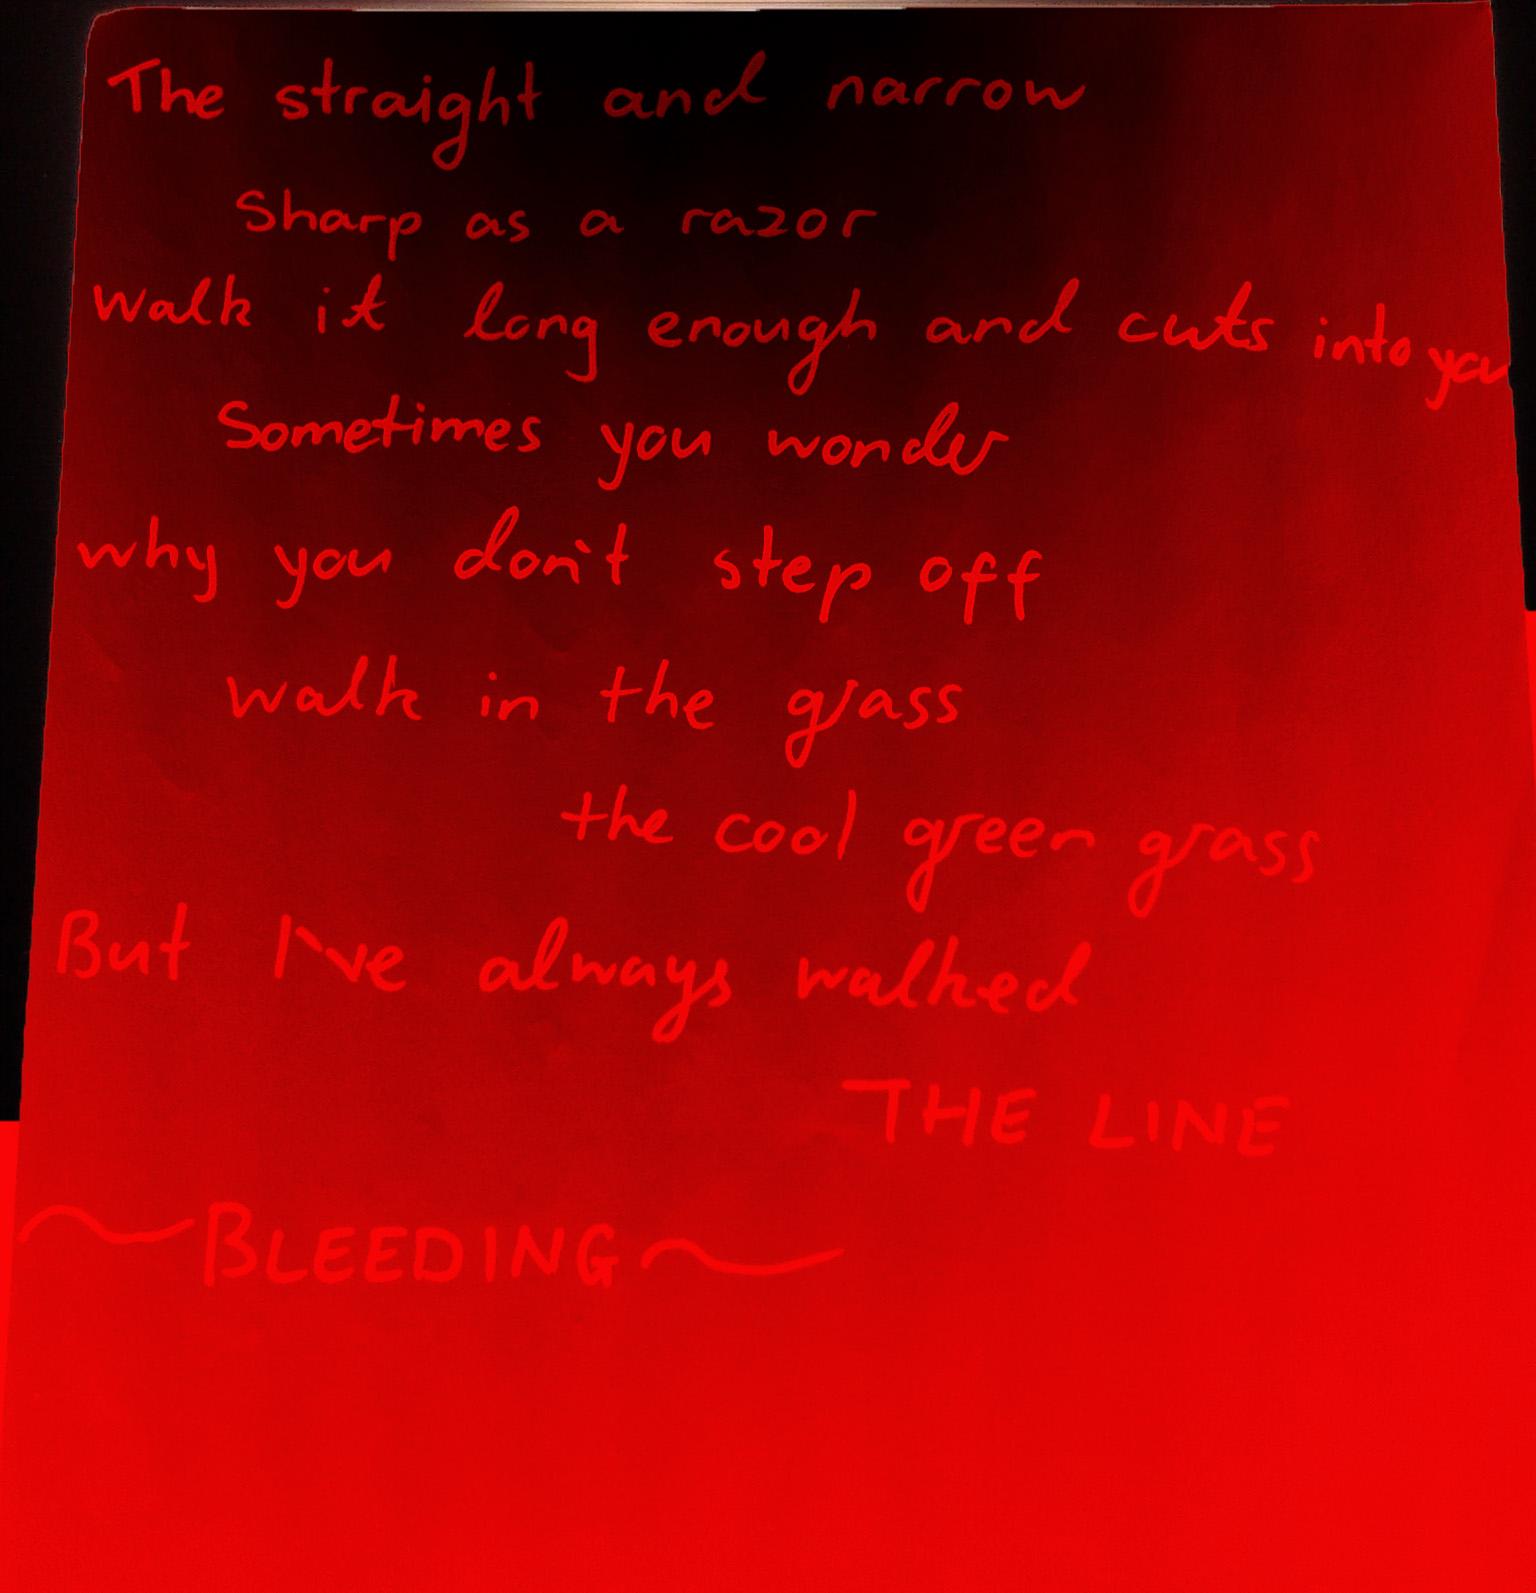 The straight and narrow
Sharp as a razor
walk it long enough and cuts into you
Sometimes you wonder
why you don't step off
walk in the grass
the cool green grass
But I've always walked
THE LINE
~BLEEDING~